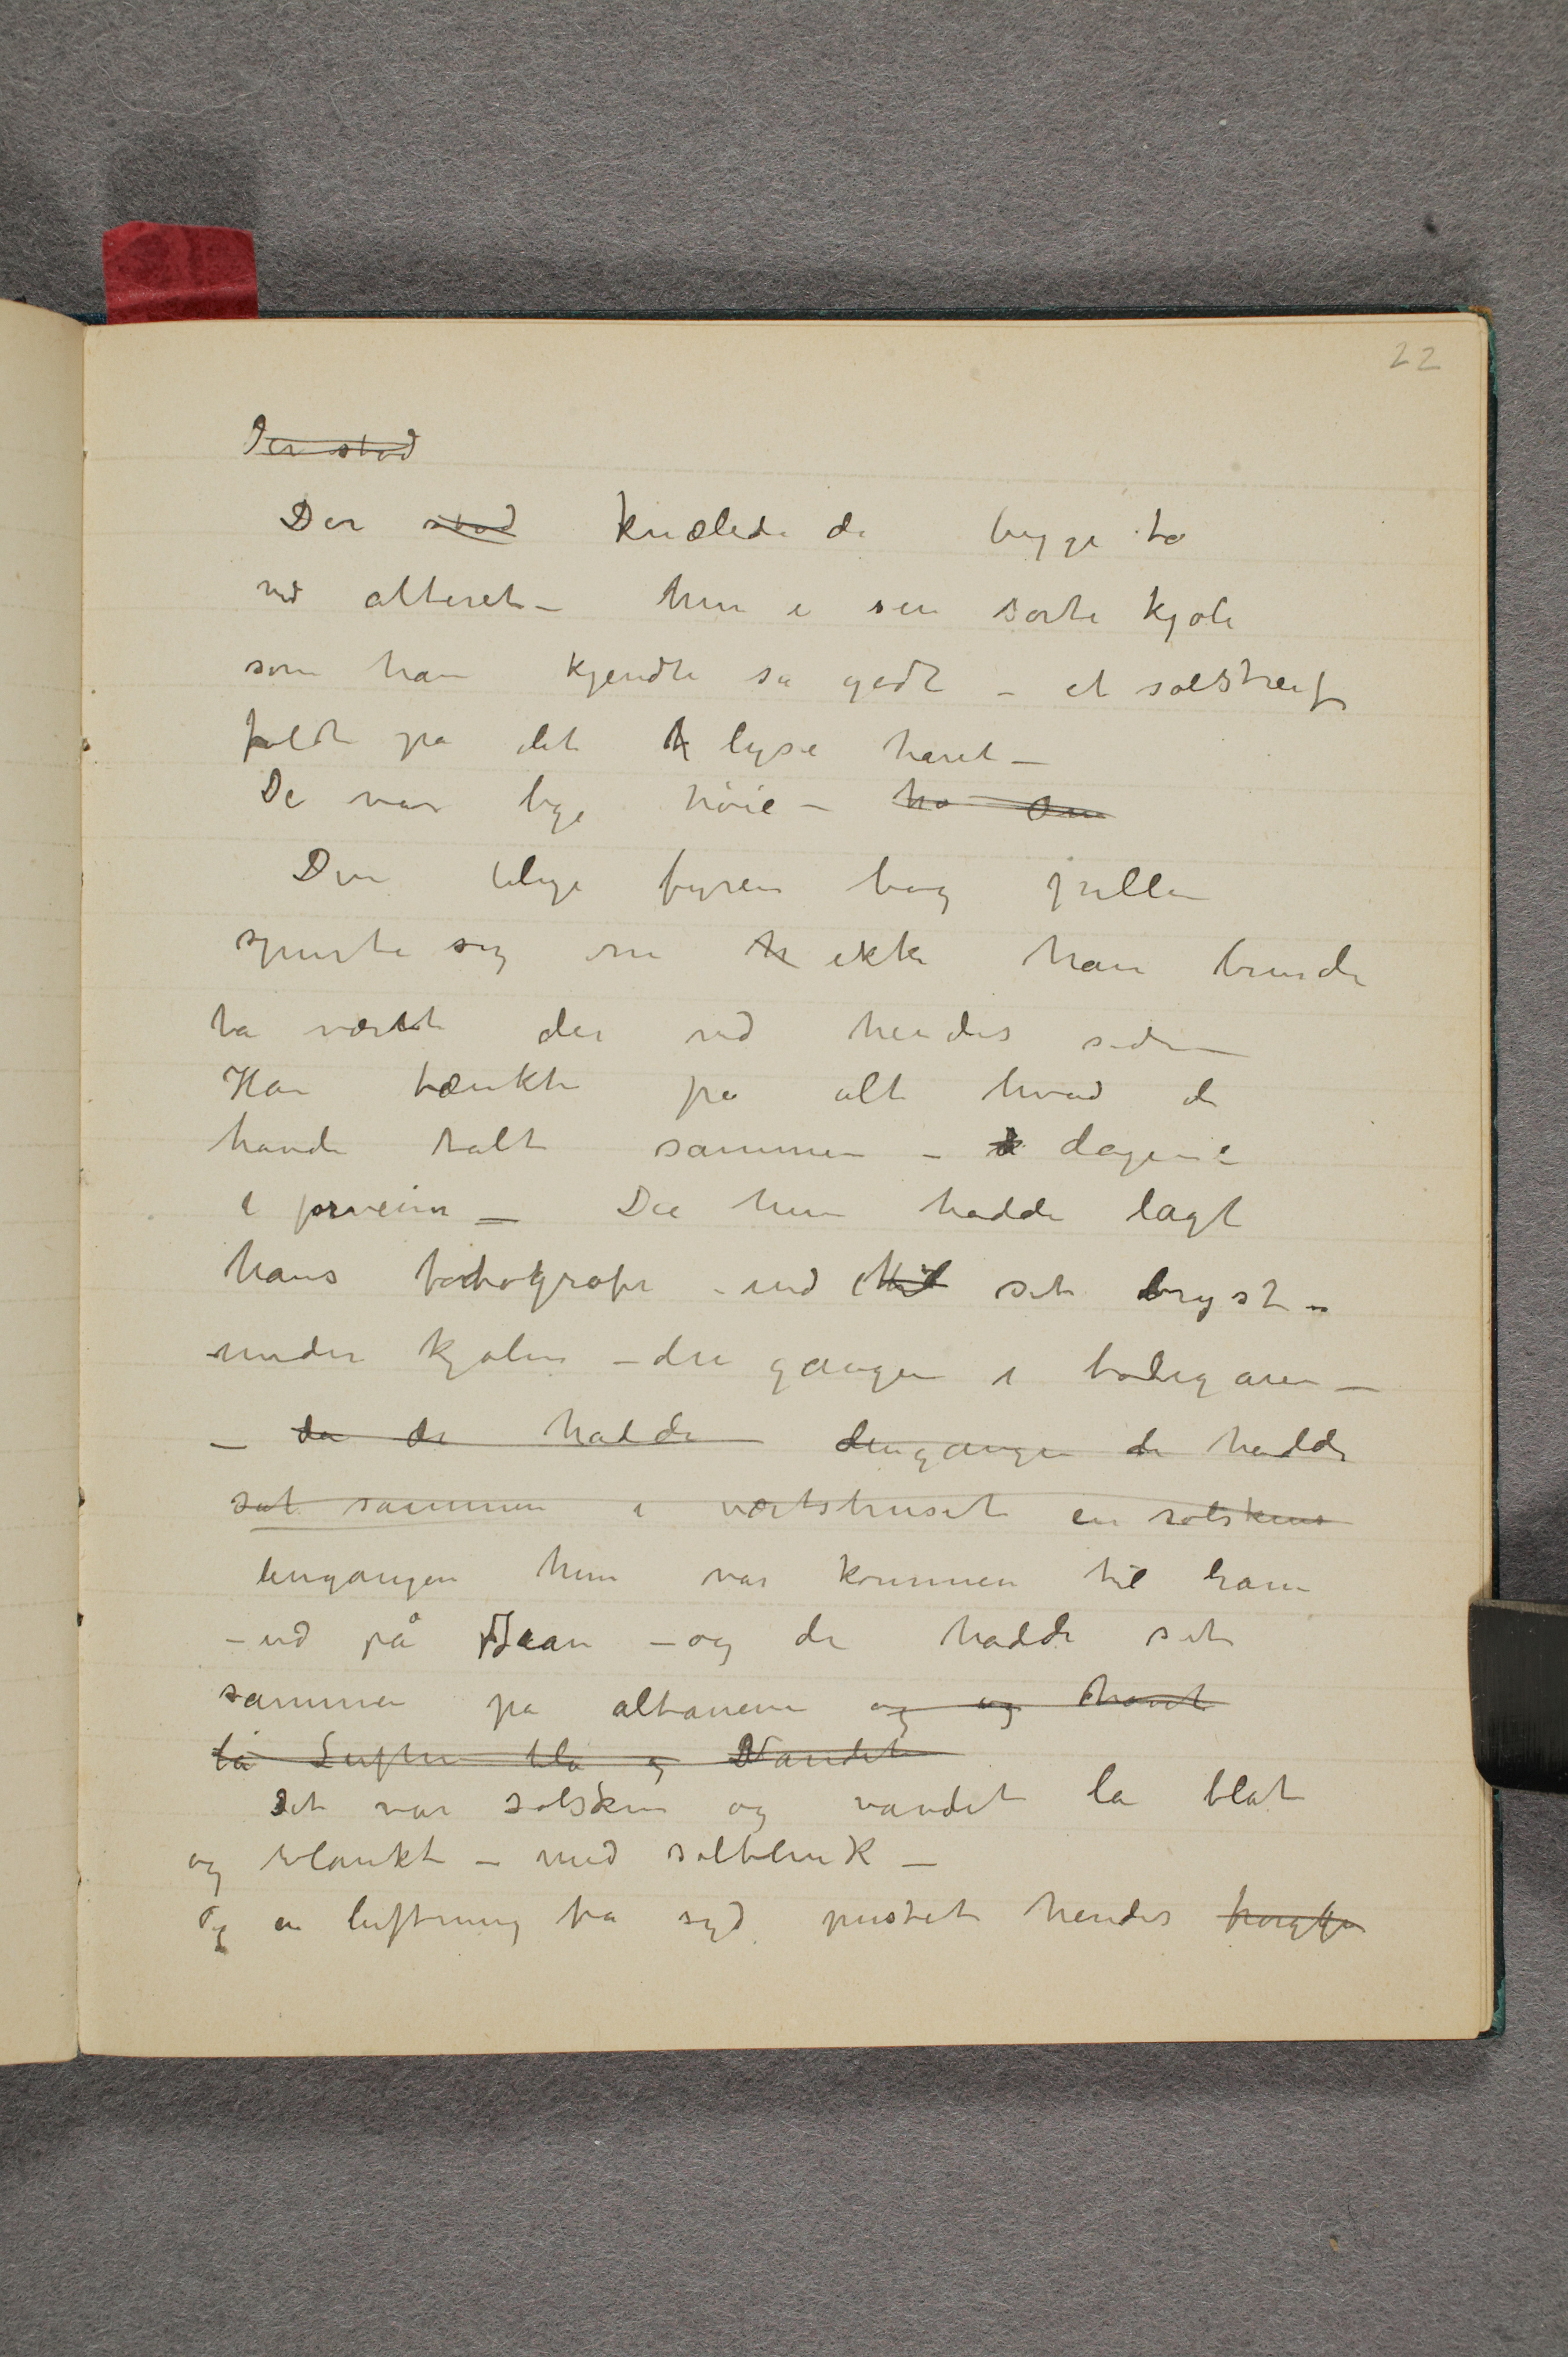 22
Der stod
Der stod knælede de begge to
ved alteret – hun i sin sorte kjole
som han kjendte så godt – et solstreif
faldt på det h lyse håret –
De var lige høie – ha
Den blege fyren bag pillen
spurte sig om h ikke han burde
ha været der ved hendes side
Han tænkte på alt hvad de
havde talt sammen – dagene
i forveien – Da hun hadde lagt
hans fotografi ind til set bryst –
under kjolen – den gangen i boligaren –
– da de hadde dengangen de hadde
sat sammen i vertshuset en solskins
engangen hun var kommen til ham
– ud på – og de hadde set
sammen på altanerne og og havet
lå Luften blå og Vandet
Det var solskin og vandet lå blåt
og blankt – med solblink –
Og en luftning fra syd pustet hendes